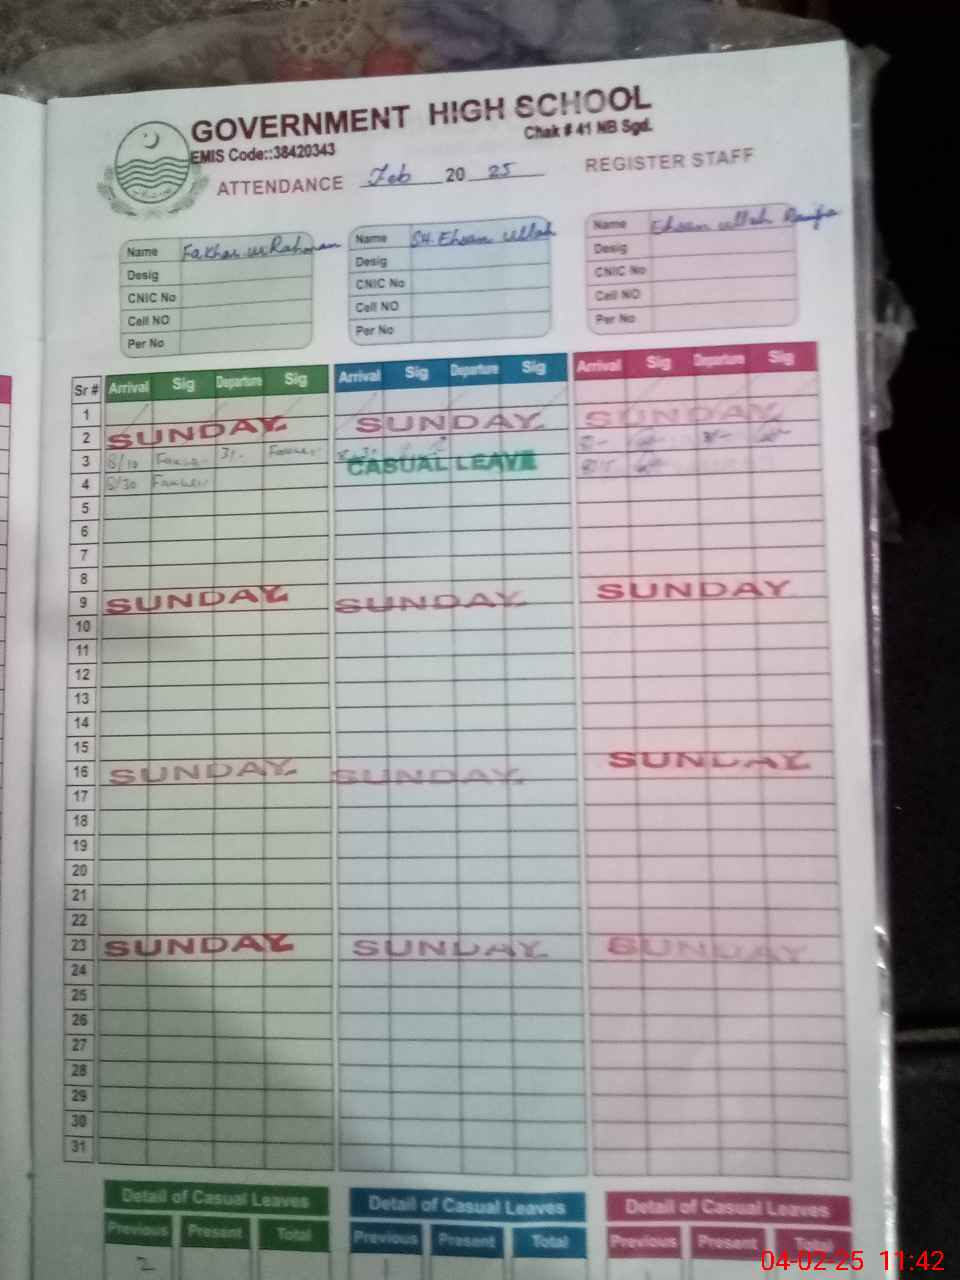 GOVERNMENT HIGH SCHOOL
Chak # 41 NB Sgd.
EMIS Code::38420343
ATTENDANCE Feb 20 25 REGISTER STAFF
Name Fakhar ur Rahman Name SH. Ehsan Ullah Name Ehsan ullah
Desig Desig Desig
CNIC No CNIC No CNIC No
Cell NO Cell NO Cell NO
Per No Per No Per No
Sr # Arrival Sig Departure Sig Arrival Sig Departure Sig Arrival Sig Departure Sig
1 SUNDAY SUNDAY SUNDAY
2
3 8/10 3/- CASUAL LEAVE
4 8/30
5
6
7
8
9 SUNDAY SUNDAY SUNDAY
10
11
12
13
14
15
16 SUNDAY SUNDAY SUNDAY
17
18
19
20
21
22
23 SUNDAY SUNDAY SUNDAY
24
25
26
27
28
29
30
31
Detail of Casual Leaves Detail of Casual Leaves Detail of Casual Leaves
Previous Present Total Previous Present Total Previous Present Total
2
04-02-25 11:42